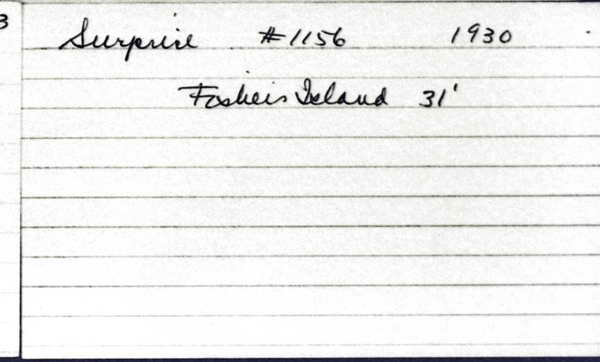 3
Surprise #1156 1930
Fishers Island 31'